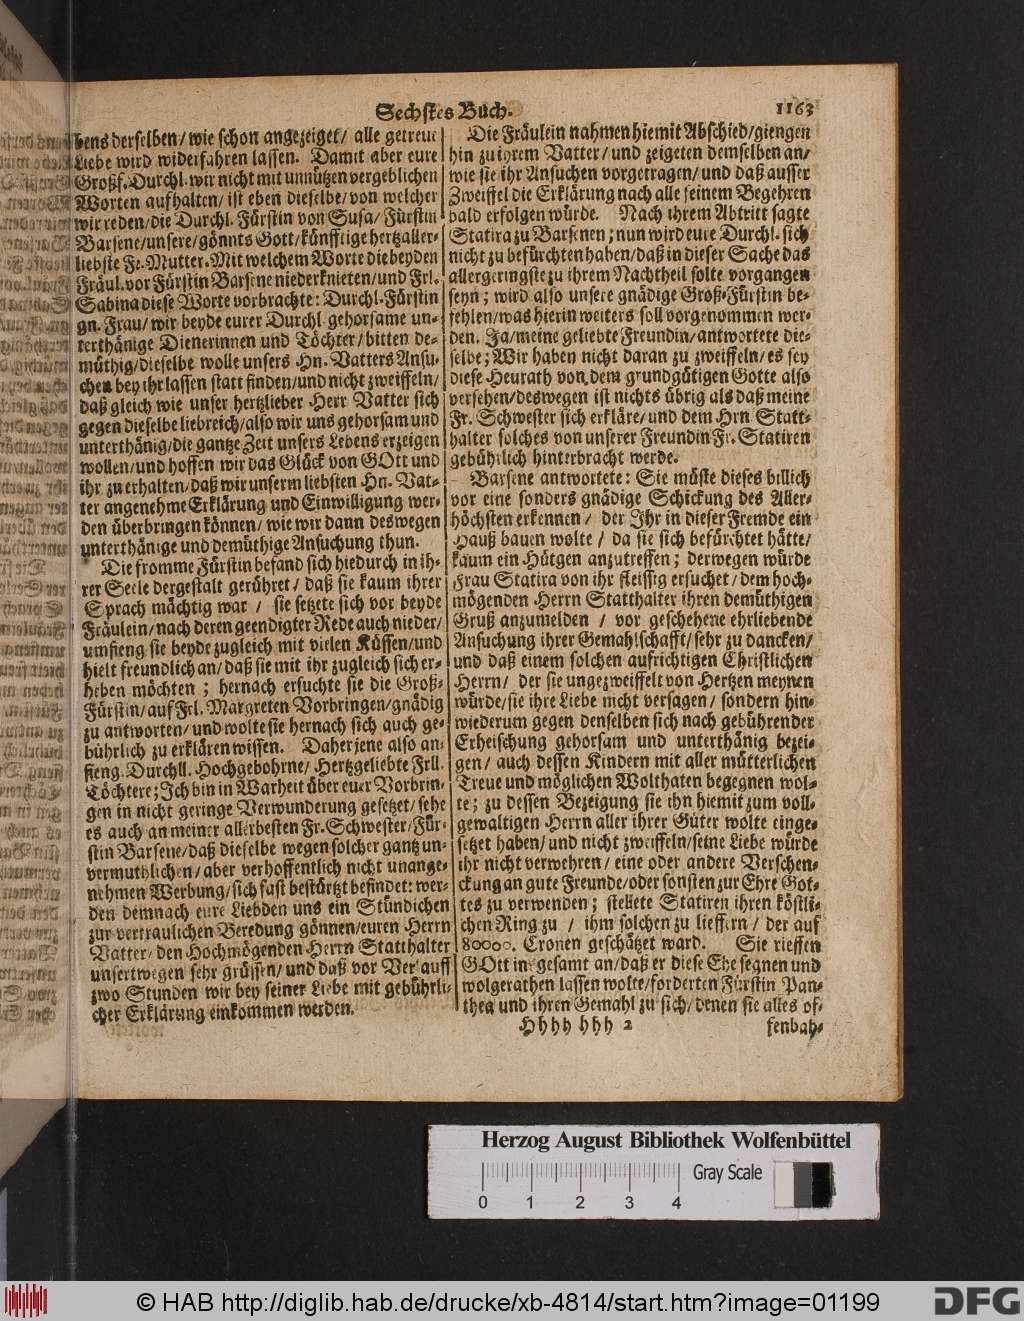 Sechstes Buch. 1163
bens derselben/ wie schon angezeiget/ alle getreue
Liebe wird widerfahren lassen. Damit aber eure
Großf. Durchl. wir nicht mit unnützen vergeblichen
Worten aufhalten/ ist eben dieselbe/ von welcher
wir reden/ die Durchl. Fürstin von Susa/ Fürstin
Barsene/ unsere/ gönnts Gott/ künfftige hertzaller-
liebste Fr. Mutter. Mit welchem Worte die beyden
Fräul. vor Fürstin Barsene niederknieten/ und Frl.
Sabina diese Worte vorbrachte: Durchl. Fürstin
gn. Frau/ wir beyde eurer Durchl. gehorsame un-
terthänige Dienerinnen und Töchter/ bitten de-
müthig/ dieselbe wolle unsers Hn. Vatters Ansu-
chen bey ihr lassen statt finden/ und nicht zweiffeln/
daß gleich wie unser hertzlieber Herr Vatter sich
gegen dieselbe liebreich/ also wir uns gehorsam und
unterthänig/ die gantze Zeit unsers Lebens erzeigen
wollen/ und hoffen wir das Glück von GOtt und
ihr zu erhalten/ daß wir unserm liebsten Hn. Vat-
ter angenehme Erklärung und Einwilligung wer-
den überbringen können/ wie wir dann deswegen
unterthänige und demüthige Ansuchung thun.
Die fromme Fürstin befand sich hiedurch in ih-
rer Seele dergestalt gerühret/ daß sie kaum ihrer
Sprach mächtig war / sie setzete sich vor beyde
Fräulein/ nach deren geendigter Rede auch nieder/
umfieng sie beyde zugleich mit vielen Küssen/ und
hielt freundlich an/ daß sie mit ihr zugleich sich er-
heben möchten ; hernach ersuchte sie die Groß-
Fürstin/ auf Frl. Margreten Vorbringen/ gnädig
zu antworten/ und wolte sie hernach sich auch ge-
bührlich zu erklären wissen. Daher jene also an-
fieng. Durchll. Hochgebohrne/ Hertzgeliebte Frll.
Töchtere; Ich bin in Warheit über euer Vorbrin-
gen in nicht geringe Verwunderung gesetzet/ sehe
es auch an meiner allerbesten Fr. Schwester/ Für-
stin Barsene/ daß dieselbe wegen solcher gantz un-
vermuthlichen/ aber verhoffentlich nicht unange-
nehmen Werbung/ sich fast bestürtzt befindet: wer-
den demnach eure Liebden uns ein Stündichen
zur vertraulichen Beredung gönnen/ euren Herrn
Vatter/ den Hochmögenden Herrn Statthalter
unsertwegen sehr grüssen/ und daß vor Verlauff
zwo Stunden wir bey seiner Liebe mit gebührli-
cher Erklärung einkommen werden.
Die Fräulein nahmen hiemit Abschied/ giengen
hin zu ihrem Vatter/ und zeigeten demselben an/
wie sie ihr Ansuchen vorgetragen/ und daß ausser
Zweiffel die Erklärung nach alle seinem Begehren
bald erfolgen würde. Nach ihrem Abtritt sagte
Statira zu Barsenen; nun wird eure Durchl. sich
nicht zu befürchten haben/ daß in dieser Sache das
allergeringste zu ihrem Nachtheil solte vorgangen
seyn; wird also unsere gnädige Groß-Fürstin be-
fehlen/ was hierin weiters soll vorgenommen wer-
den. Ja/ meine geliebte Freundin/ antwortete die-
selbe; Wir haben nicht daran zu zweiffeln/ es sey
diese Heurath von dem grundgütigen Gotte also
versehen/ deswegen ist nichts übrig als daß meine
Fr. Schwester sich erkläre/ und dem Hrn Statt-
halter solches von unserer Freundin Fr. Statiren
gebührlich hinterbracht werde.
Barsene antwortete: Sie müste dieses billich
vor eine sonders gnädige Schickung des Aller-
höchsten erkennen / der Ihr in dieser Fremde ein
Hauß bauen wolte / da sie sich befürchtet hätte/
kaum ein Hütgen anzutreffen ; derwegen würde
Frau Statira von ihr fleissig ersuchet/ dem hoch-
mögenden Herrn Statthalter ihren demüthigen
Gruß anzumelden / vor geschehene ehrliebende
Ansuchung ihrer Gemahlschafft/ sehr zu dancken/
und daß einem solchen aufrichtigen Christlichen
Herrn/ der sie ungezweiffelt von Hertzen meynen
würde/ sie ihre Liebe nicht versagen/ sondern hin-
wiederum gegen denselben sich nach gebührender
Erheischung gehorsam und unterthänig bezei-
gen/ auch dessen Kindern mit aller mütterlichen
Treue und möglichen Wolthaten begegnen wol-
te; zu dessen Bezeigung sie ihn hiemit zum voll-
gewaltigen Herrn aller ihrer Güter wolte einge-
setzet haben/ und nicht zweiffeln/ seine Liebe würde
ihr nicht verwehren/ eine oder andere Verschen-
ckung an gute Freunde/ oder sonsten zur Ehre Got-
tes zu verwenden; stellete Statiren ihren köstli-
chen Ring zu / ihm solchen zu lieffern / der auf
80000. Cronen geschätzet ward. Sie rieffen
GOtt ingesamt an/ daß er diese Ehe segnen und
wolgerathen lassen wolte/ forderten Fürstin Pan-
thea und ihren Gemahl zu sich/ denen sie alles of-
Hhhh hhh 2 fenbah-
Herzog August Bibliothek Wolfenbüttel
Gray Scale
0 1 2 3 4
© HAB http://diglib.hab.de/drucke/xb-4814/start.htm?image=01199
DFG